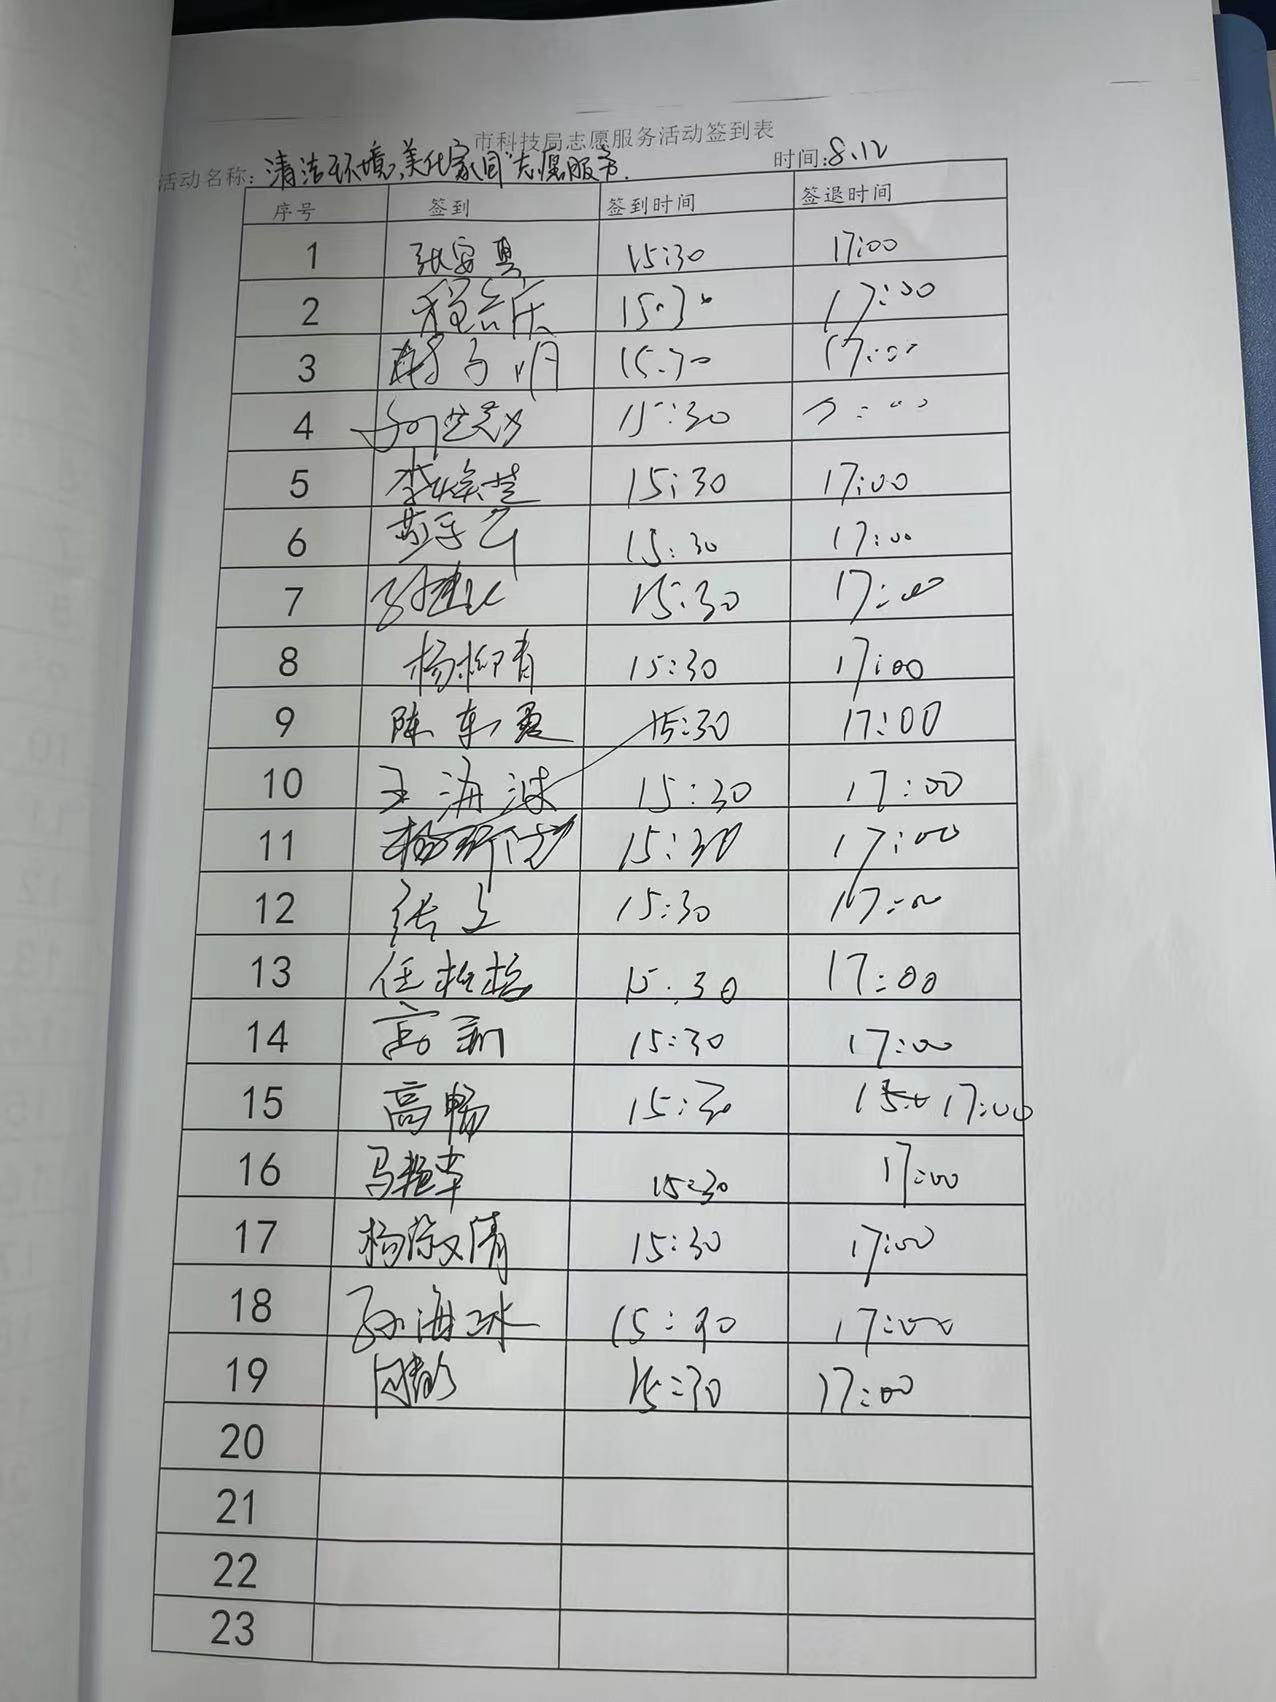 市科技局志愿服务活动签到表
活动名称: 清洁环境,美化家园"志愿服务. 时间:8.12
序号 签到 签到时间 签退时间
1 15:30 17:00
2 15:30 17:00
3 15:30 17:00
4 15:30 17:00
5 15:30 17:00
6 15:30 17:00
7 15:30 17:00
8 杨柳青 15:30 17:00
9 陈 15:30 17:00
10 王海波 15:30 17:00
11 杨 15:30 17:00
12 张 15:30 17:00
13 任 15:30 17:00
14 高 15:30 17:00
15 高畅 15:30 17:00
16 马艳 15:30 17:00
17 杨 清 15:30 17:00
18 孙海冰 15:30 17:00
19 15:30 17:00
20
21
22
23